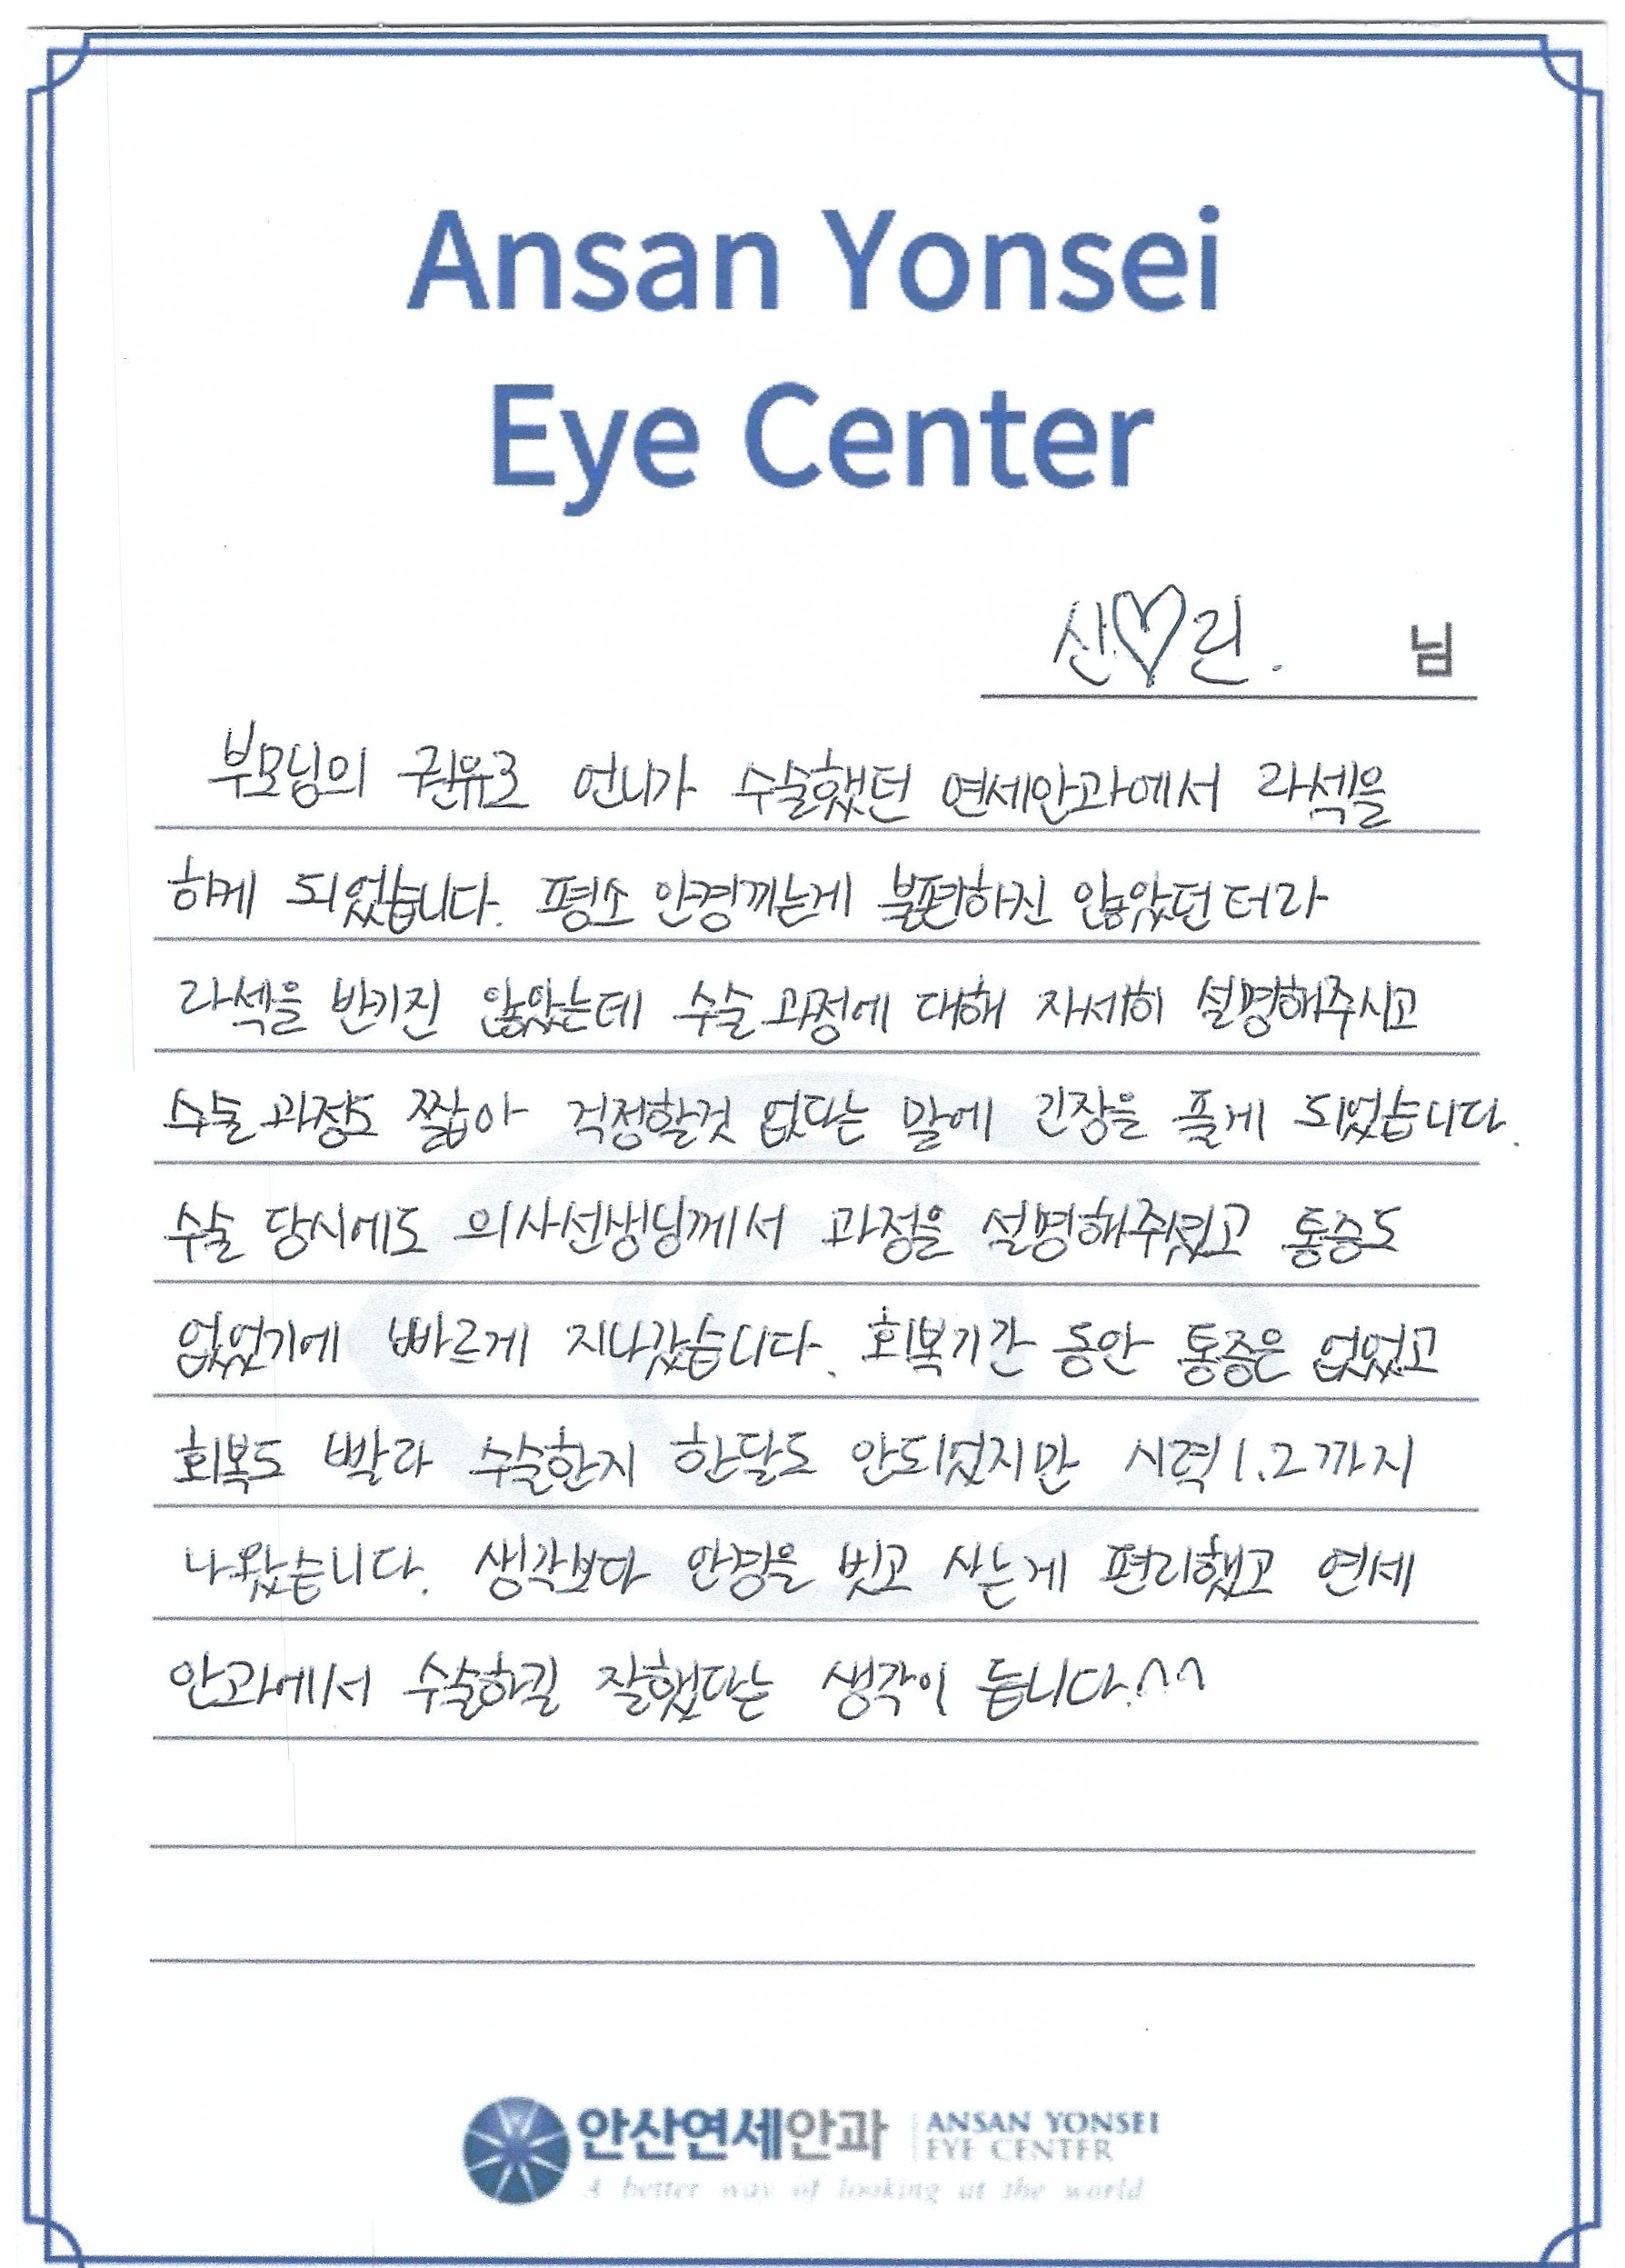 Ansan Yonsei
Eye Center
신♡린. 님
부모님의 권유로 언니가 수술했던 연세안과에서 라섹을
하게 되었습니다. 평소 안경끼는게 불편하진 않았던터라
라섹을 반기진 않았는데 수술 과정에 대해 자세히 설명해주시고
수술 과정도 짧아 걱정할것 없다는 말에 긴장을 풀게 되었습니다.
수술 당시에도 의사선생님께서 과정을 설명해주셨고 통증도
없었기에 빠르게 지나갔습니다. 회복기간 동안 통증은 없었고
회복도 빨라 수술한지 한달도 안되었지만 시력1.2까지
나왔습니다. 생각보다 안경을 벗고 사는게 편리했고 연세
안과에서 수술하길 잘했다는 생각이 듭니다.^^
안산연세안과 ANSAN YONSEI
EYE CENTER
A better way of looking at the world